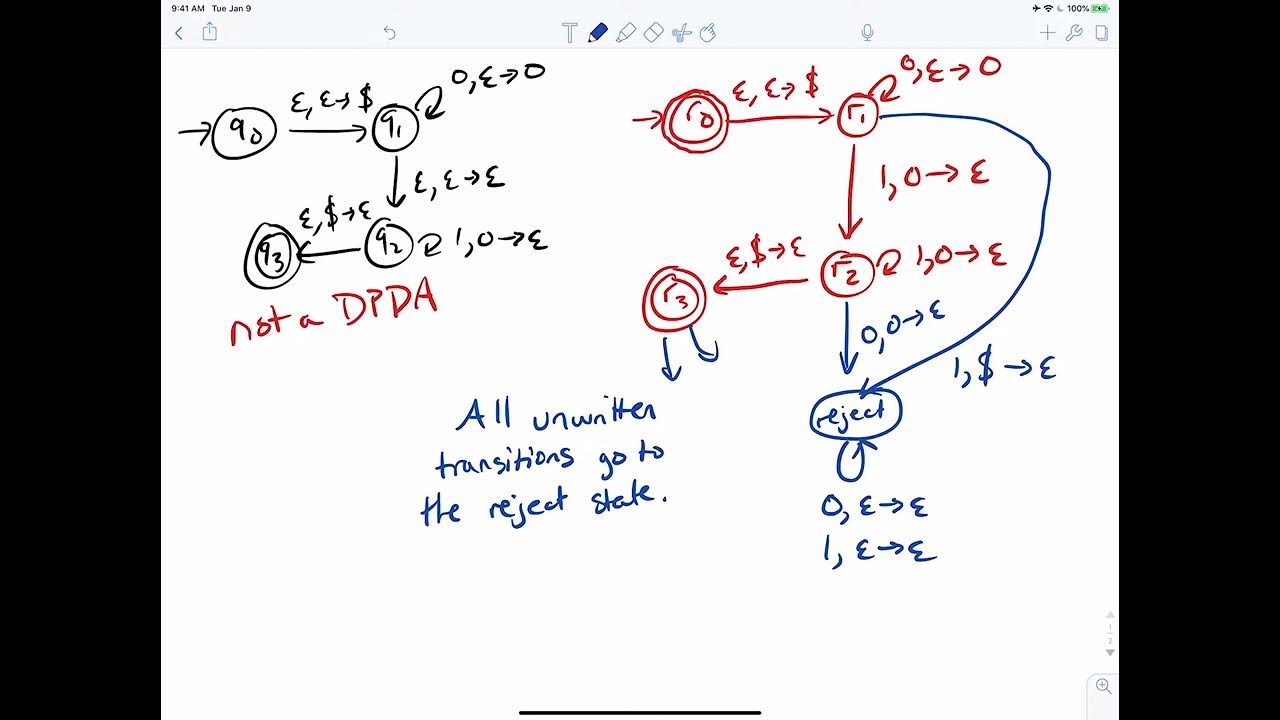 9:41 AM Tue Jan 9
100%
T
ε, ε→$
0, ε→0
q0
q1
ε, ε→ε
ε, $→ε
q3
q2
1, 0→ε
not a DPDA
ε, ε→$
0, ε→0
r0
r1
1, 0→ε
ε, $→ε
r3
r2
1, 0→ε
0, 0→ε
1, $→ε
reject
0, ε→ε
1, ε→ε
All unwritten
transitions go to
the reject state.
1
2